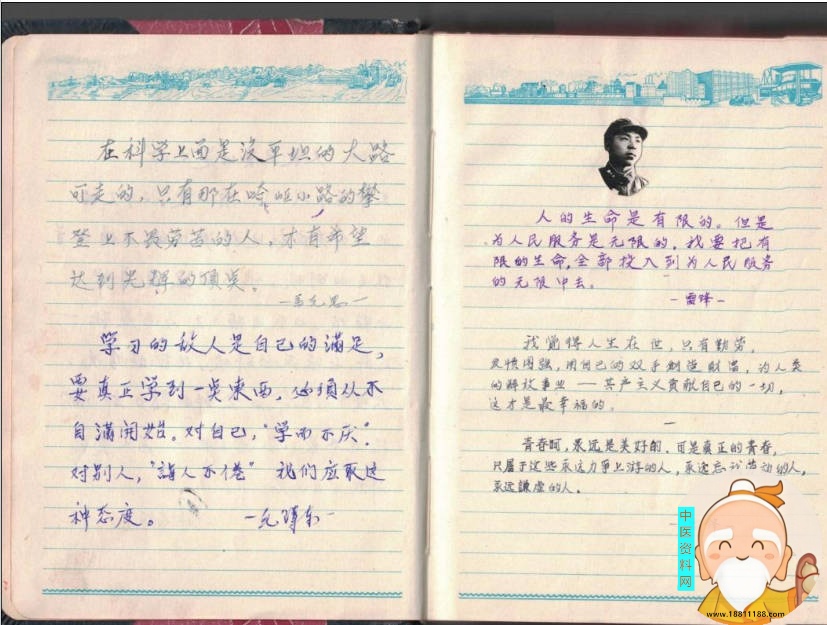 在科学上面是没平坦的大路
可走的，只有那在崎岖小路的攀
登上不畏劳苦的人，才有希望
达到光辉的顶点。
—马克思—
学习的敌人是自己的满足，
要真正学到一点东西，必须从不
自满開始。对自己，“学而不厌”。
对别人，“誨人不倦” 我们应取这
种态度。
—毛泽东—
人的生命是有限的。但是
为人民服务是无限的，我要把有
限的生命，全部投入到为人民服务
的无限中去。
—雷锋—
我觉得人生在世，只有勤劳，
发愤图强，用自己的双手创造财富，为人类
的解放事业——共产主义贡献自己的一切，
这才是最幸福的。
青春啊，永远是美好的，可是真正的青春，
只属于这些永远力争上游的人，永远忘我劳动的人，
永远謙虚的人。
中医资料网
www.18811188.com